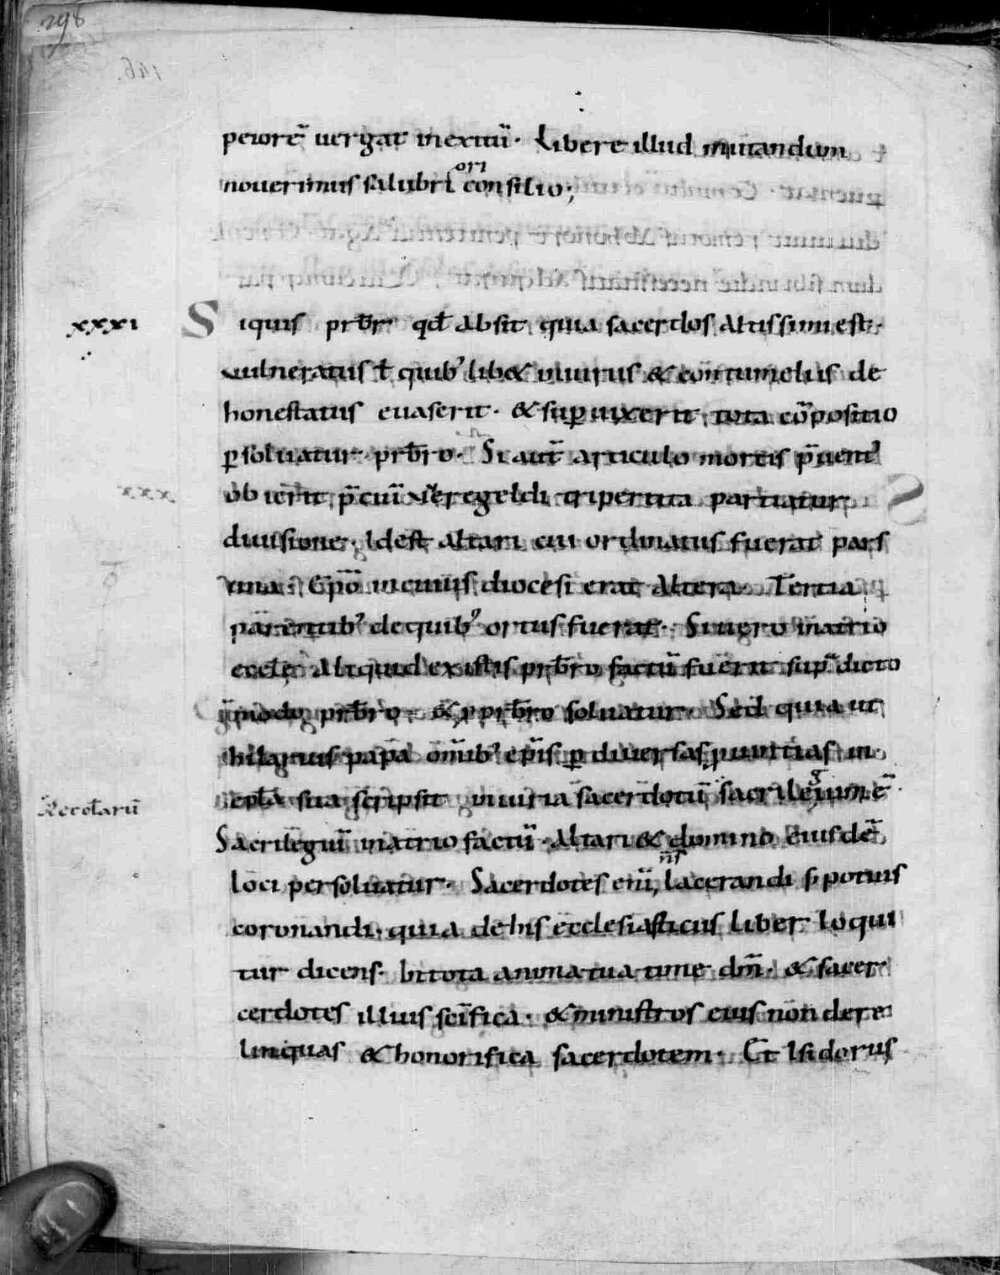 298
146.
peiorē uergat in exitū· Libere illud mutandum
ori
nouerimus salubri consilio;
xxxi
Siquis prb̄r· qd̄ absit quia sacerdos altissimi est·
uulneratus ł quib' lib& iniuriis & contumeliis de
honestatus euaserit· & sup uixerit tota cōpositio
psoluatur prb̄ro· Si aut̄ articulo mortis p̄uent'
obierit p̄ciū tripertita partiatur
diuisione· Idest altari cui ordinatus fuerat pars
una· Ep̄o in cuius diocesi erat altera· Tertia
parentib' de quib' ortus fuerat· Si uero in atrio
eccłe aliquid ex istis prb̄ro factū fuerit sup̄ dicto
modo prb̄ro· & p prb̄ro soluatur· Sed quia ut
hilarius papa om̄ib' ep̄is p diuersas puintias in
epła sua scripsit iniuria sacerdotū
Sacrilegiū in atrio factū· altari & domino eiusdē
loci persoluatur· Sacerdotes eni lacerandi s; potius
coronandi· quia de his ecclesiasticus liber loqui
tur dicens· In tota anima tua time dm̄· & sacer
cerdotes illius sc̄ifica· & ministros eius non dere
linquas & honorifica sacerdotem· Et Isidorus